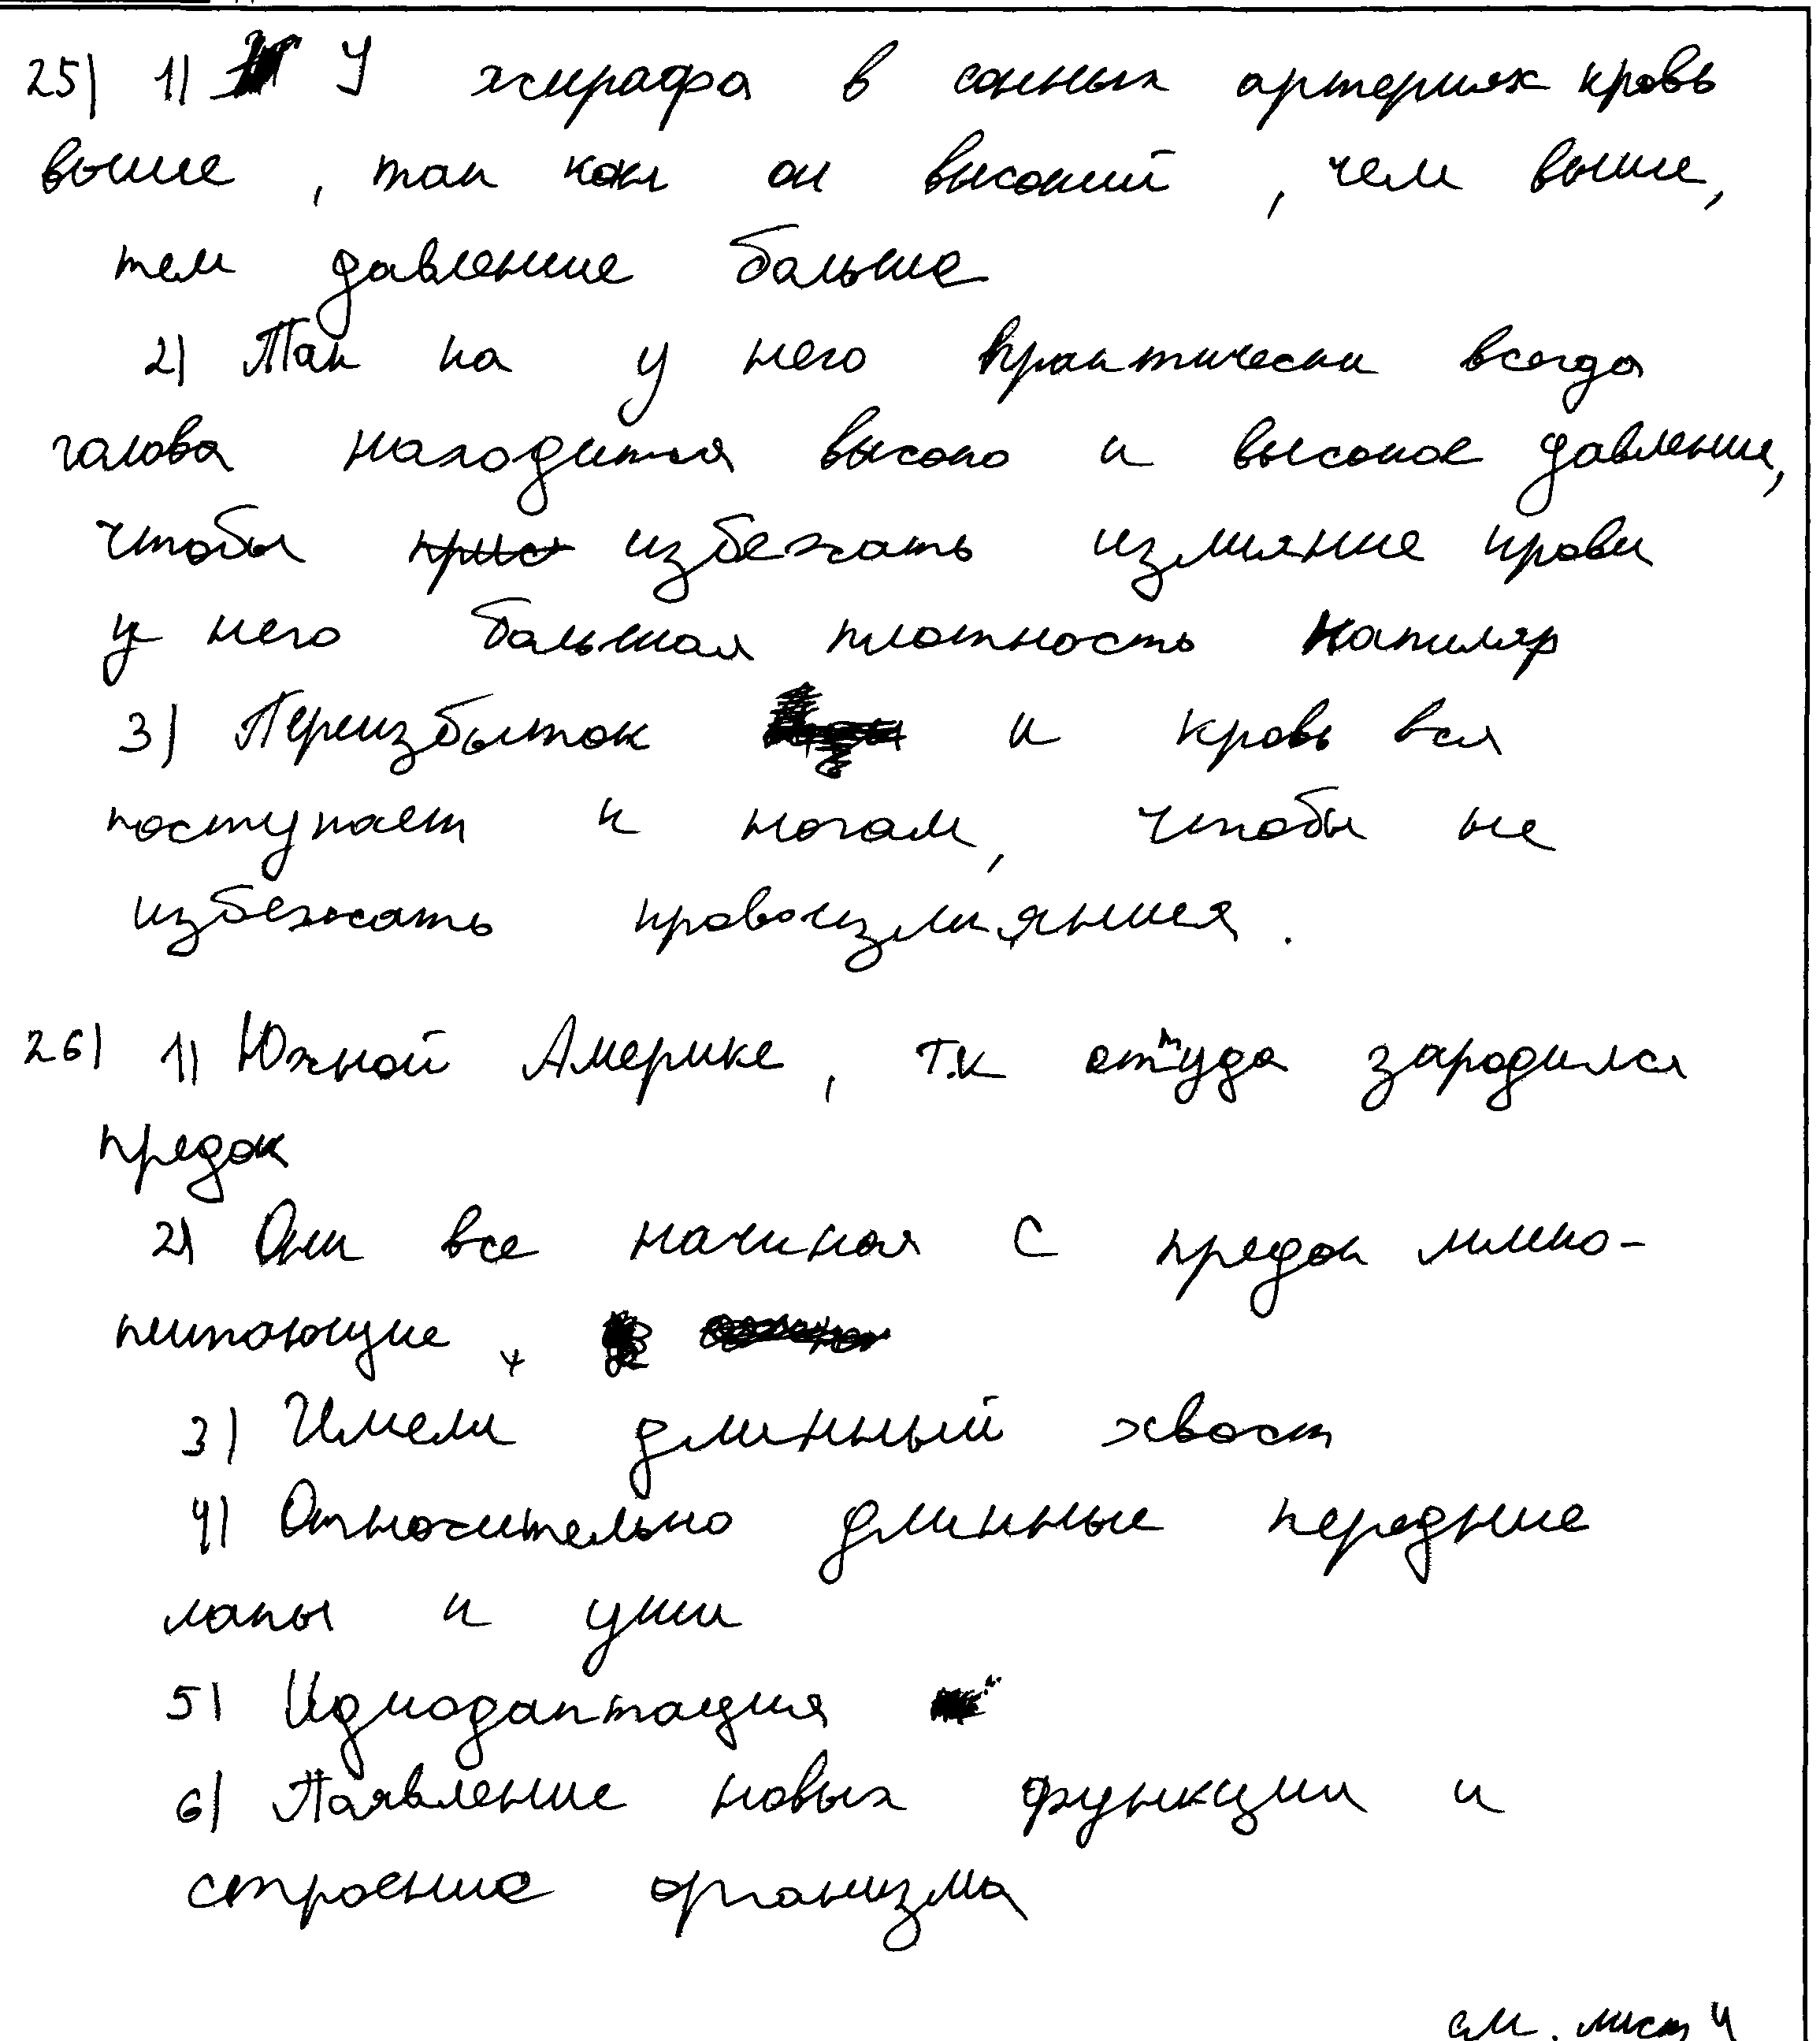 25) 1) У жирафа в сонных артериях кровь
выше, так как он высокий, чем выше,
тем давление больше
2) Так ка у него практически всегда
голова находится высоко и высокое давление,
чтобы избежать излияние крови
у него большая плотность капиляр
3) Переизбыток и кровь вся
поступает к ногам, чтобы не
избежать кровоизлияния.
26) 1) Южной Америке, т.к оттуда зародился
предок
2) Они все начиная с предок млеко-
питающие
3) Имели длинный хвост
4) Относительно длинные передние
лапы и уши
5) Идиодаптация
6) Паявление новых функции и
строение организма
см. лист 4